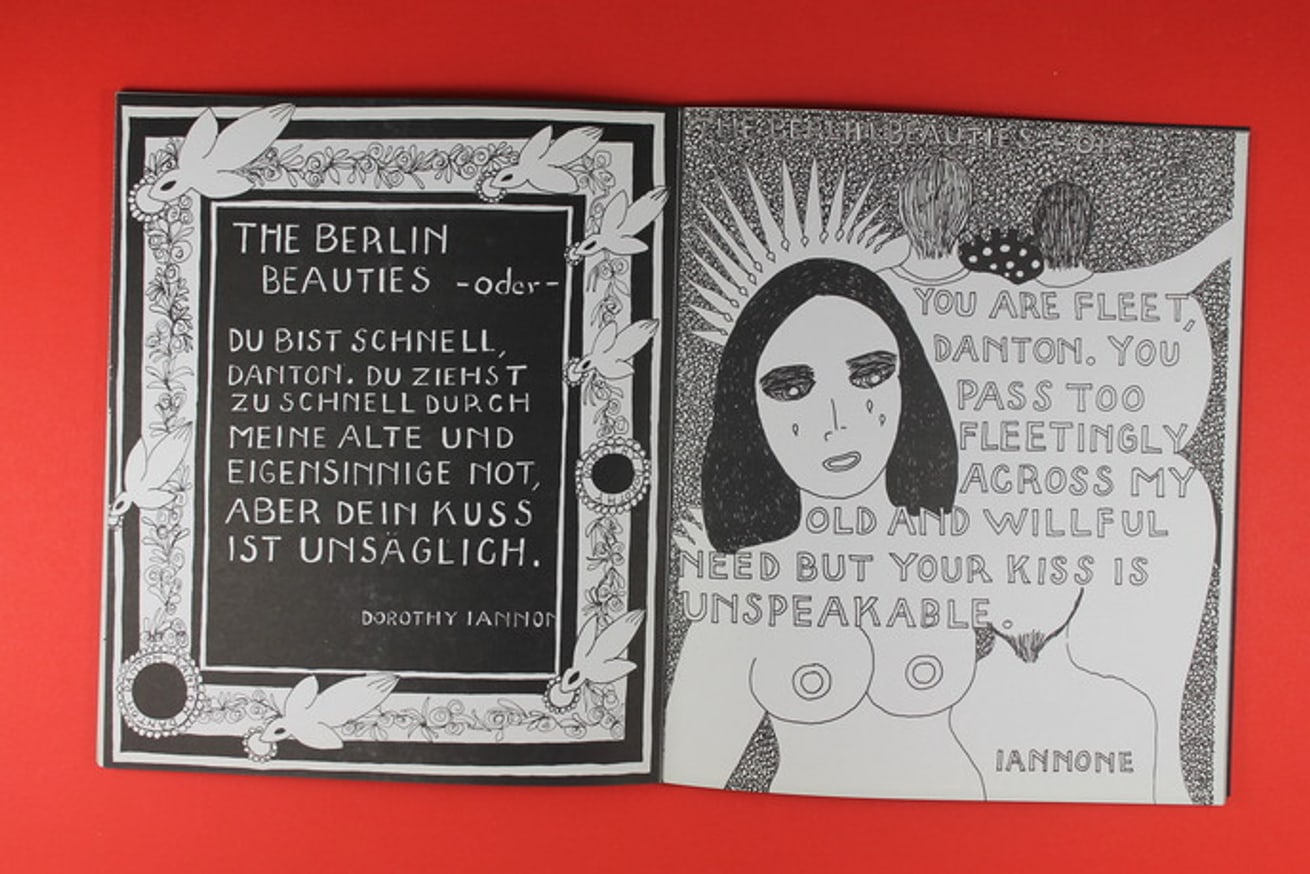 THE BERLIN
BEAUTIES -oder-
DU BIST SCHNELL,
DANTON. DU ZIEHST
ZU SCHNELL DURCH
MEINE ALTE UND
EIGENSINNIGE NOT,
ABER DEIN KUSS
IST UNSÄGLICH.
DOROTHY IANNON
THE BERLIN BEAUTIES - OR -
YOU ARE FLEET,
DANTON. YOU
PASS TOO
FLEETINGLY
ACROSS MY
OLD AND WILLFUL
NEED BUT YOUR KISS IS
UNSPEAKABLE.
IANNONE